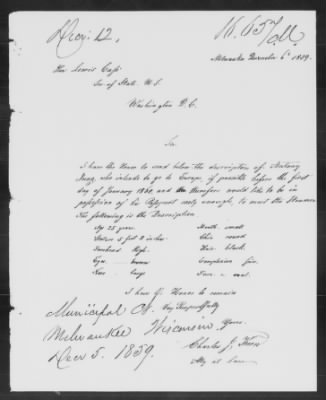 Decr. 12,
Milwaukee December 6th 1859.
Hon Lewis Cass
Sec. of State U.S.
Washington D.C.
Sir
I have the Honor to send below the description of Antony
who intends to go to Europe, if possible before the first
day of January 1860, and therefore would like to be in
possession of his Passport early enough, to meet the Steamer.
The following is the Description
Age 25 years. Mouth small
Stature 5 feet 2 inches Chin round
Forehead High. Hair black.
Eyes brown Complexion fair.
Nose large Face oval.
I have Yr. Honor to remain
Municipal Ct. Very Respectfully
Milwaukee Wisconsin, Yours
Decr 5. 1859. Charles J.
Atty at Law